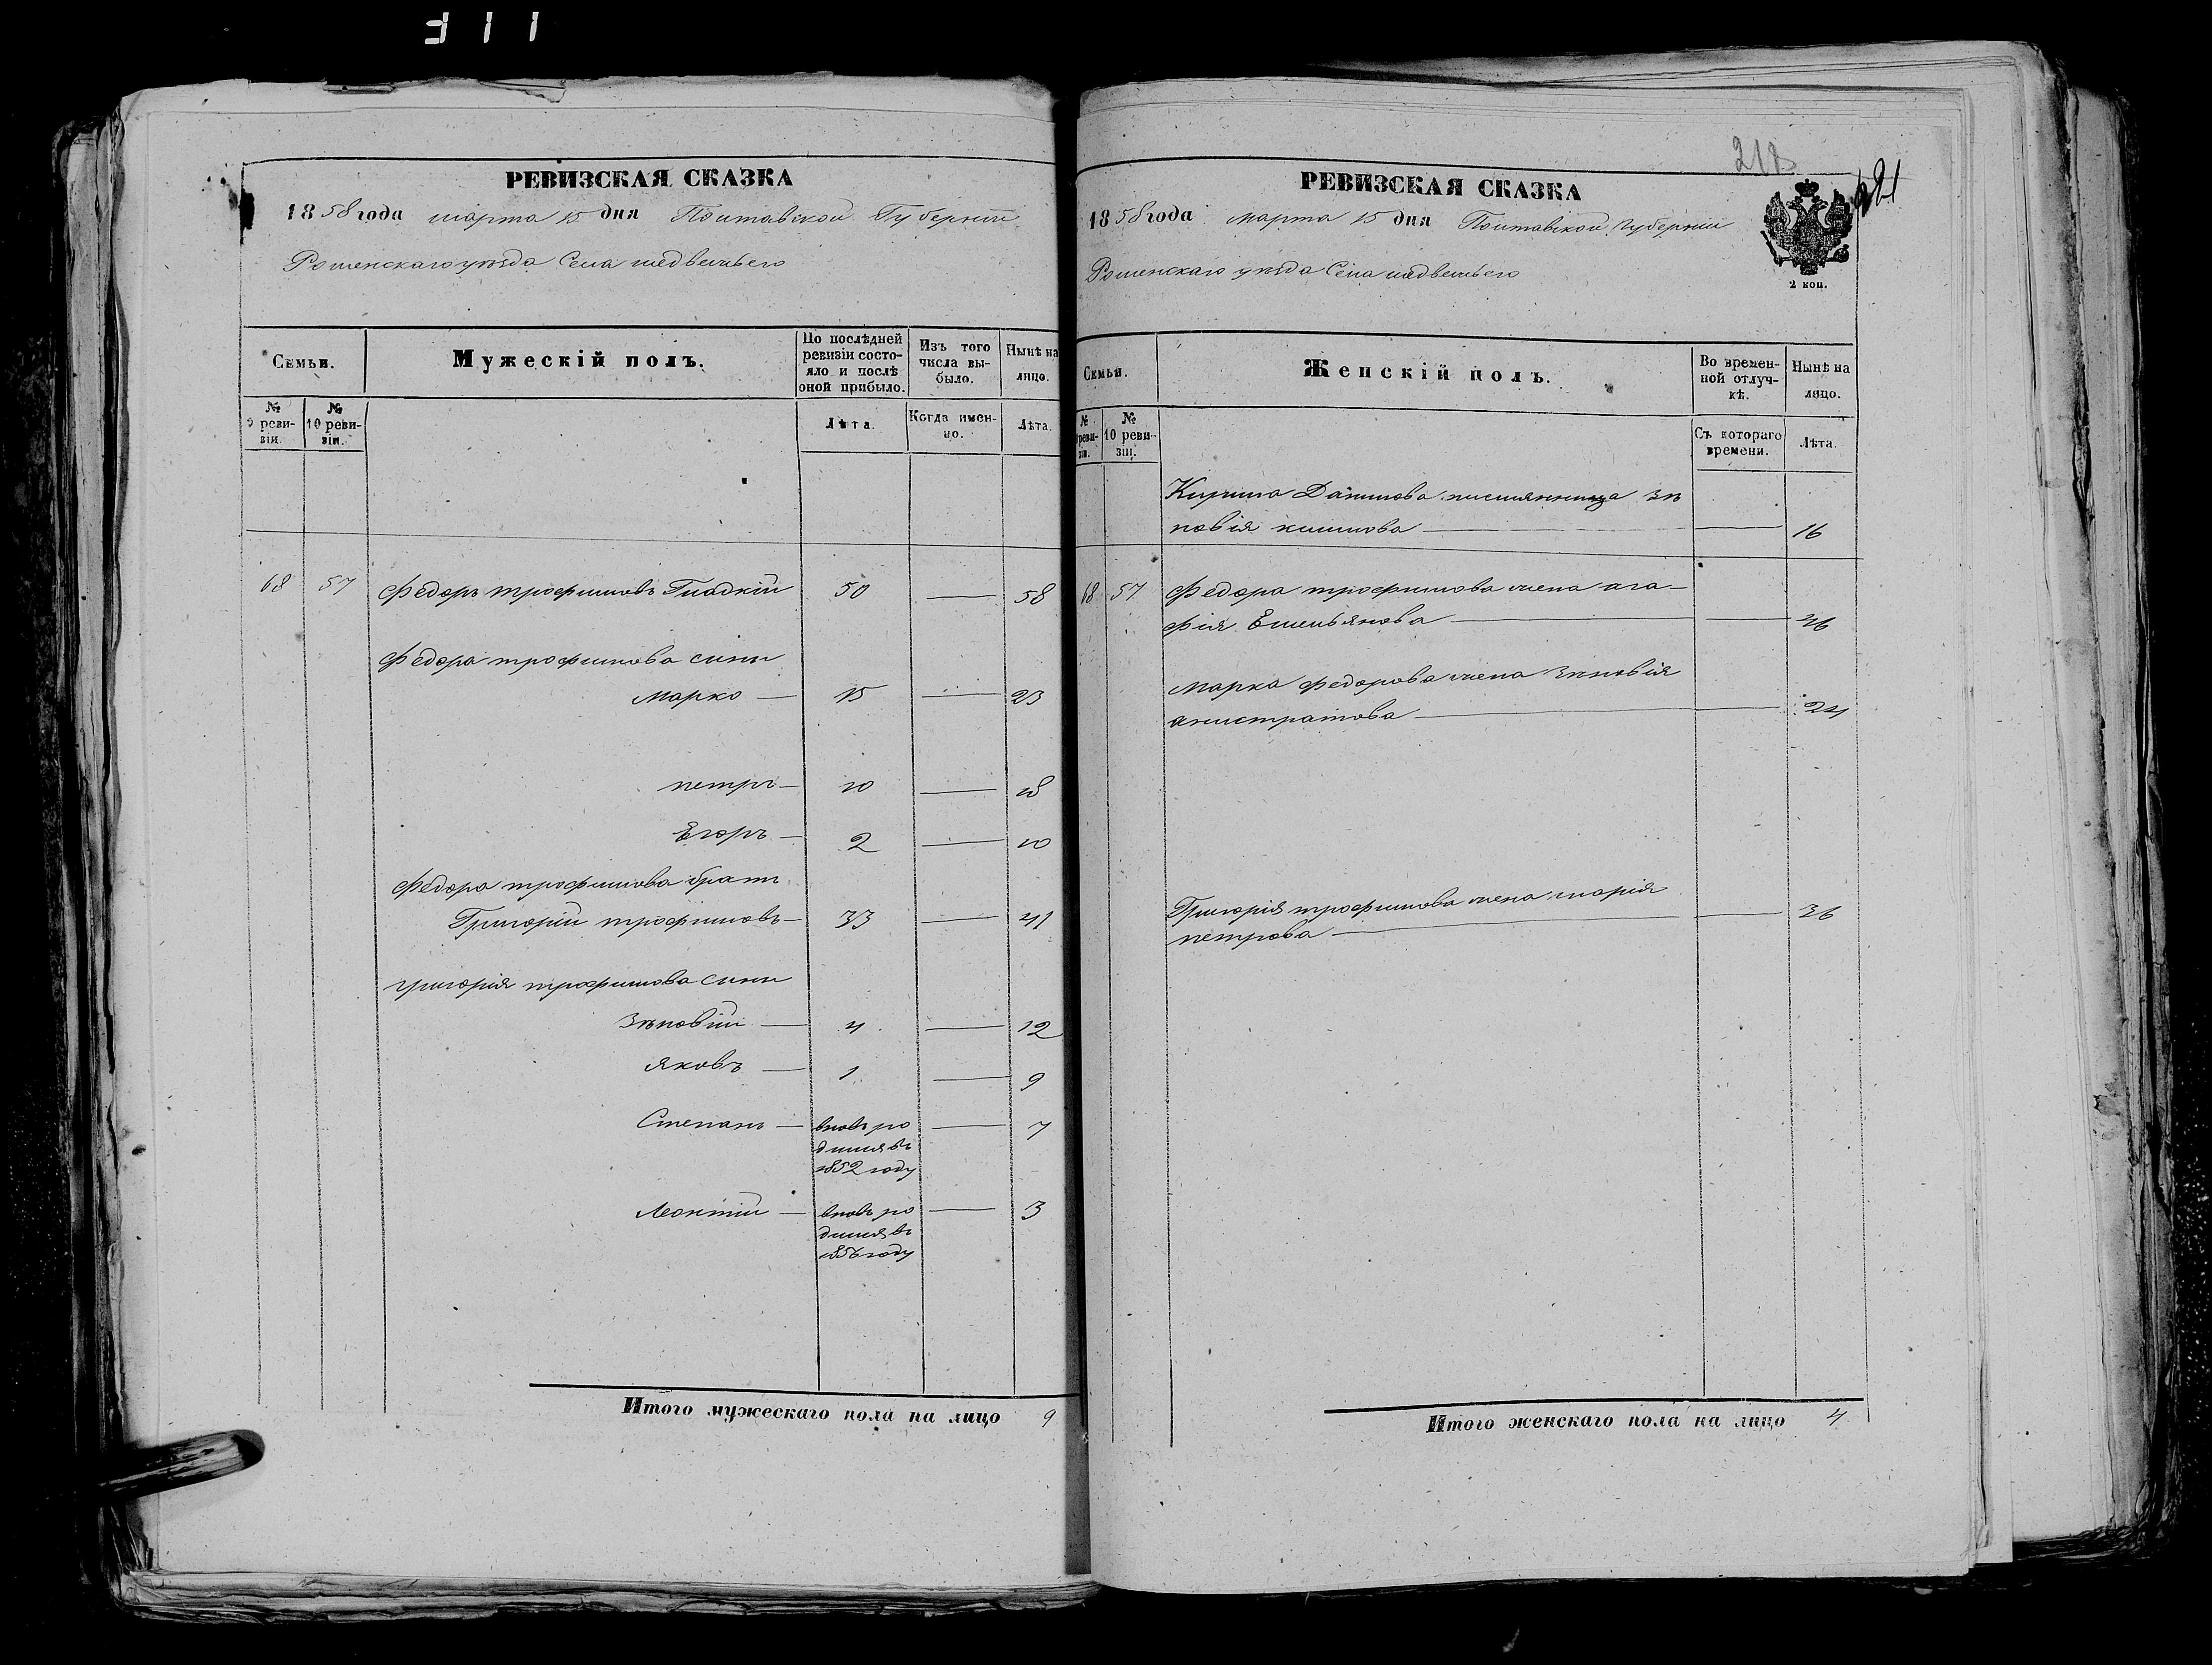 311
РЕВИЗСКАЯ СКАЗКА
1858 года марта 15 дня Полтавской Губернии
Роменскаго уезда Села медвежьего
Семьи.
Мужескій полъ.
По послѣдней ревизіи состояло и послѣ оной прибыло.
Изъ того числа выбыло.
Нынѣ на лицо.
№ 9 ревизіи.
№ 10 ревизіи.
Лѣта.
Когда именно.
Лѣта.
68 57 Федоръ трофимовъ Гладкій 50 — 58
Федора трофимова сини
Марко — 15 — 23
петръ — 10 — 18
Егоръ — 2 — 10
Федора трофимова братъ
Григорій трофимовъ — 33 — 41
григорія трофимова сини
Зѣновій — 4 — 12
Яковъ — 1 — 9
Степанъ — вновь ро — 7
дился въ
1852 году
Леонтій — вновь ро — 3
дился въ
1856 году
Итого мужескаго пола на лицо 9
218
РЕВИЗСКАЯ СКАЗКА
1858 года марта 15 дня Полтавской Губерніи
Роменскаго уезда Села медвежьего
2 коп.
Семьи.
Женскій полъ.
Во временной отлучкѣ.
Нынѣ на лицо.
№ 9 ревизіи.
№ 10 ревизіи.
Съ котораго времени.
Лѣта.
Кирила Данилова племянница Зѣ
новія климова — — 16
68 57 Федора трофимова жена ага-
фія Емельянова — — 46
Марка федорова жена Зѣновія
анистратова — — 24
Григорія трофимова жена марія
петрова — — 36
Итого женскаго пола на лицо 4